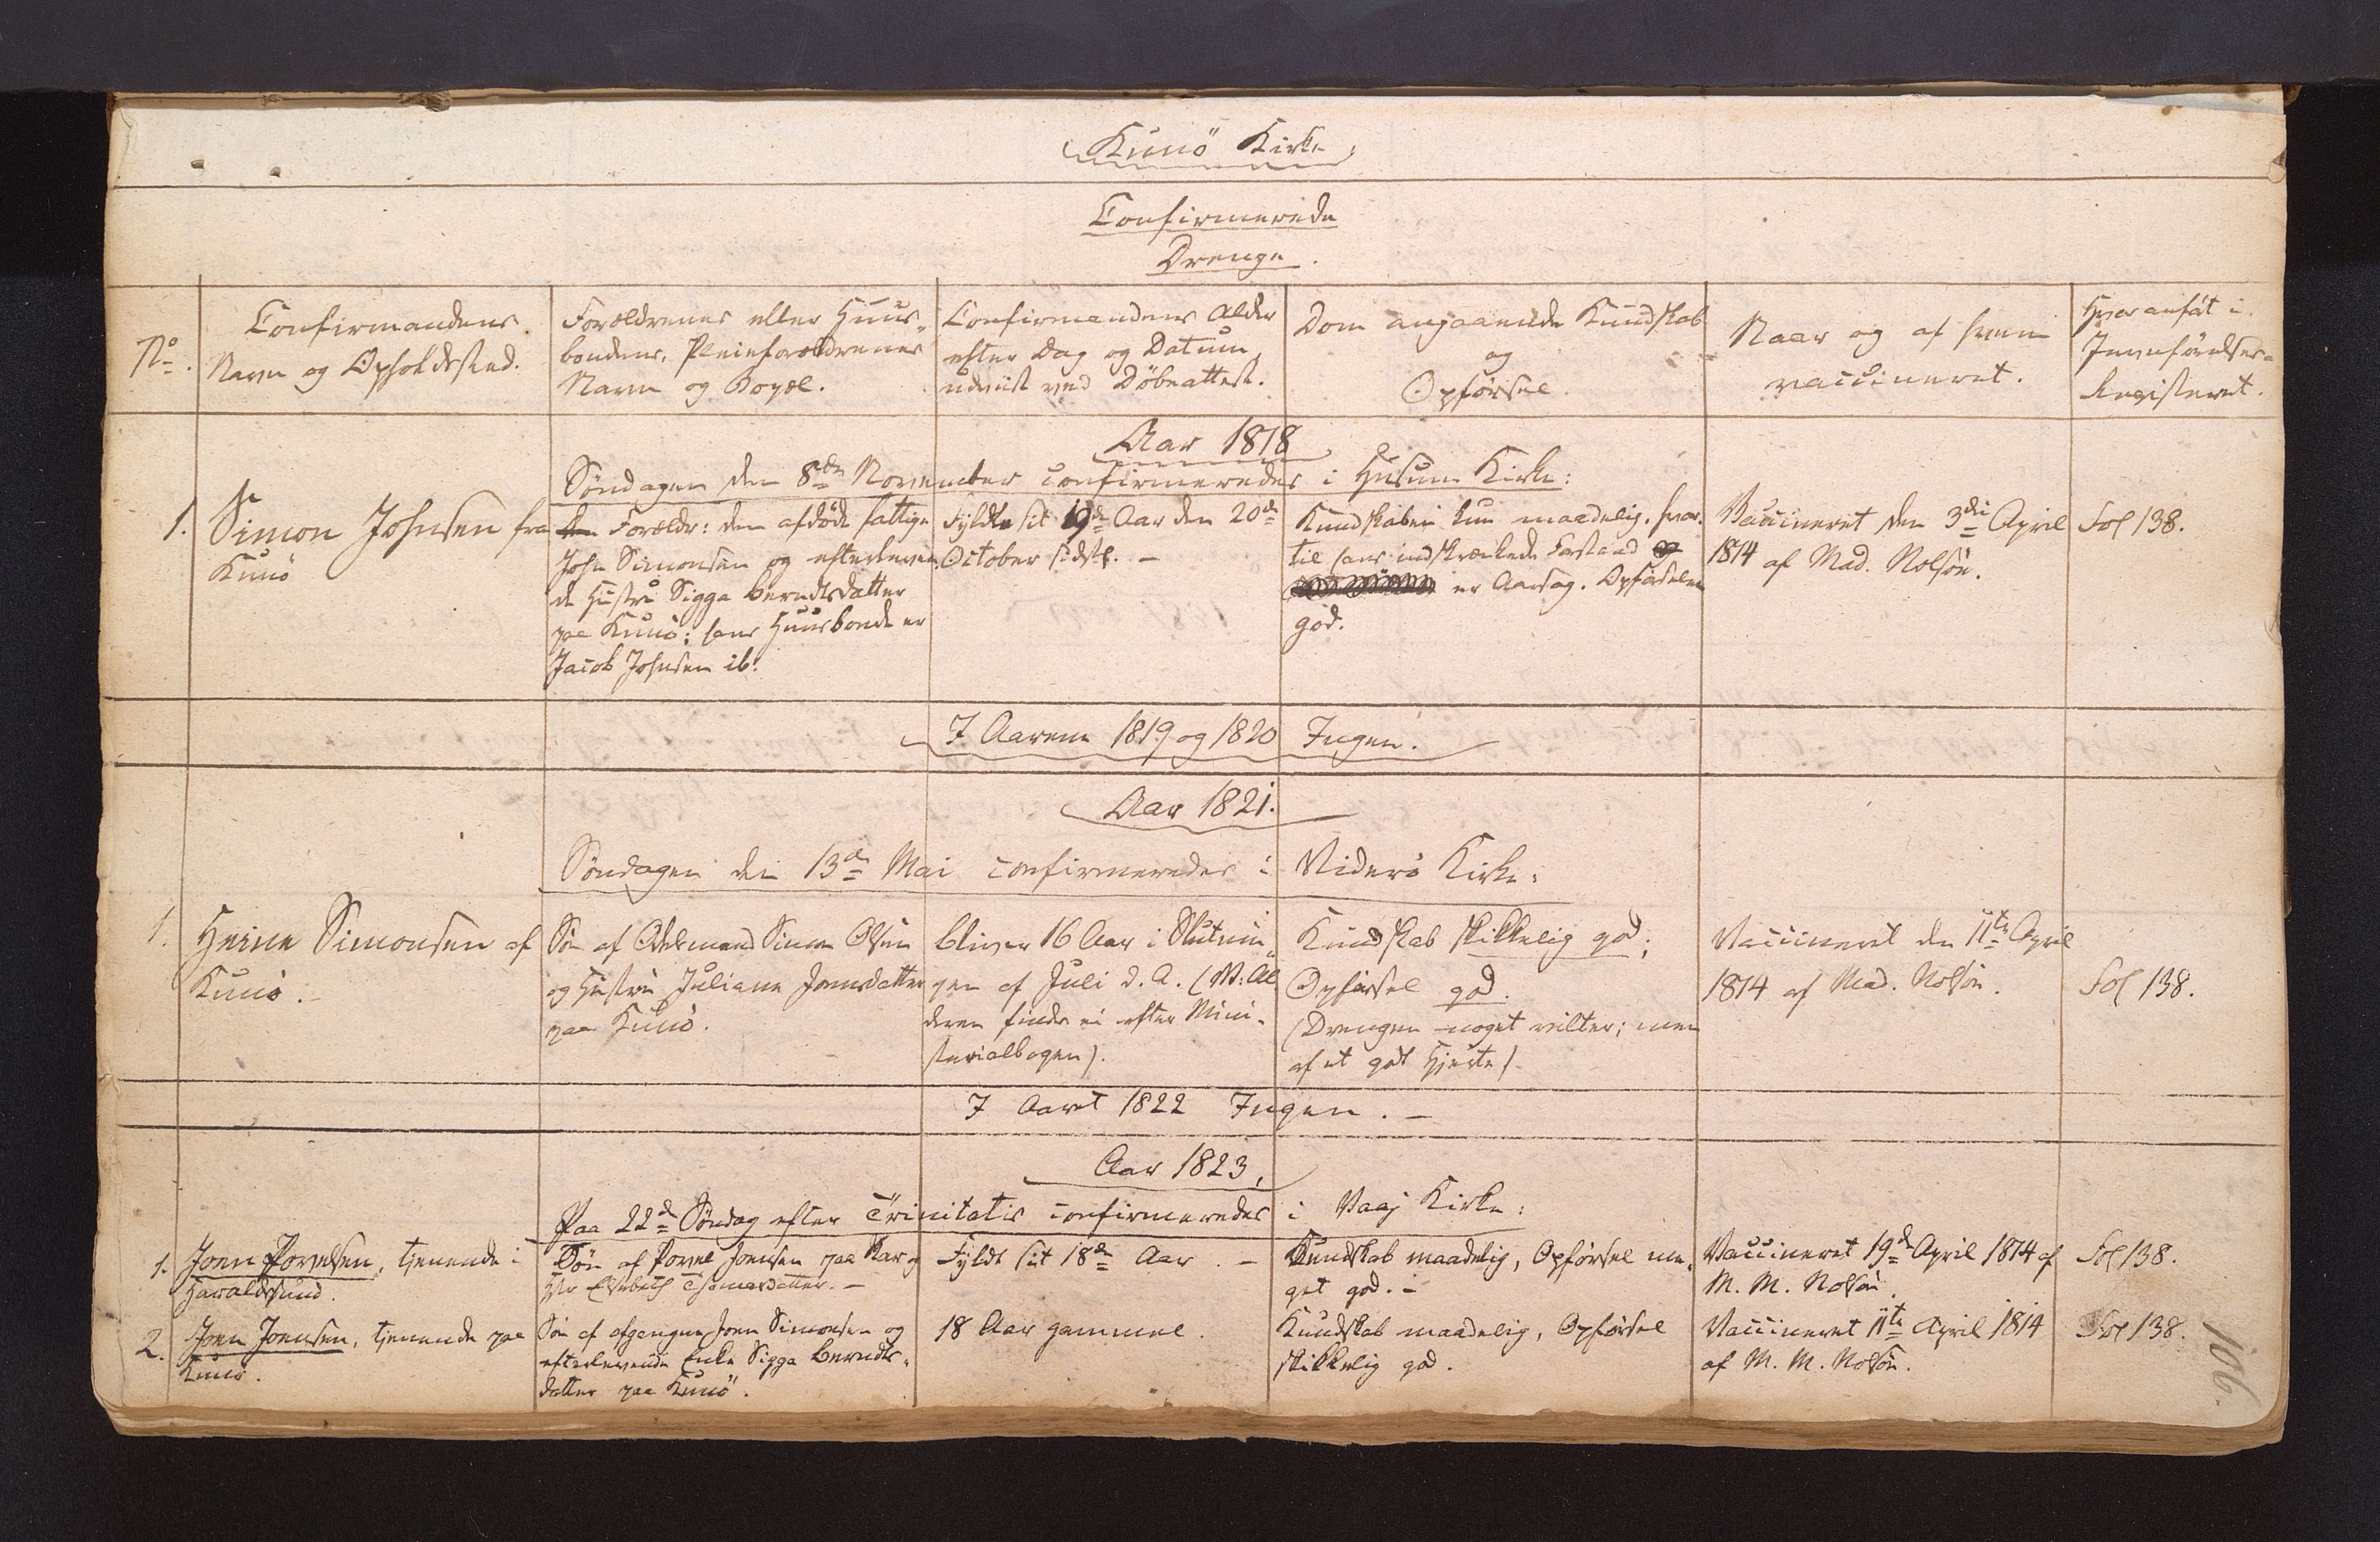 Kunö Kirke
Confirmerede
Drenge.
No.
Confirmandens
Navn og Opholdssted.
Forældrenes eller Huus-
bondens, Pleieforældrenes
Navn og Bopæl.
Confirmandens Alder
efter Dag og Datum,
udviist ved Döbeattest.
Dom angaaende Kundskab
og
Opförsel
Naar og af hvem
vaccineret.
Hvor anfört i
Jevnförelses-
Registeret.
Aar 1818
Söndagen den 8de November confirmeredes i Husum Kirke:
1.
Simon Johnsen fra
Kunö
Forældr: den afdöde fattige
John Simonsen og efterleven-
de Hustru Sigga Berndtsdatter
paa Kunö; hans Huusbonde er
Jacob Johnsen ib:
Fyldte sit 19de Aar den 20de
October sidstl. -
Kundskaben kun maadelig, hvor-
til hans indskrænkede Forstand
er Aarsag. Opförselen
god.
Vaccineret den 3die April
1814 af Mad. Nolsön.
Fol 138.
I Aarene 1819 og 1820 Ingen.
Aar 1821.
Söndagen den 13de Mai confirmeredes i Viderö Kirke:
1.
Heine Simonsen af
Kunö.
Sön af Odelsmand Simon Olsen
og Hustru Juliane Joensdatter
paa Kunö.
bliver 16 Aar i Slutnin-
gen af Juli d. A. (N: Al
deren findes ei efter Mini-
sterialbogen).
Kundskab skikkelig god;
Opförsel god.
(Drengen noget vilter; men
af et godt Hjerte).
Vaccineret den 11te April
1814 af Mad. Nolsön.
Fol 138.
I Aaret 1822 Ingen. -
Aar 1823,
Paa 22de Söndag efter Trinitatis confirmeredes i Vaaj Kirke:
1.
Joen Povelsen, tjenende i
Haraldssund.
Sön af Povel Joensen paa Skar og
Hstr Elsebeth Thomasdatter. -
Fyldt sit 18de Aar. -
Kundskab maadelig, Opförsel me-
get god. -
Vaccineret 19de April 1814 af
M. M. Nolsön.
Fol 138.
2.
Joen Joensen, tjenende paa
Kunö.
Sön af afgangne Joen Simonsen og
efterlevende Enke Sigga Berndts-
datter paa Kunö.
18 Aar gammel.
Kundskab maadelig, Opförsel
skikkelig god.
Vaccineret 11te April 1814
af M. M. Nolsön.
Fol 138.
106.